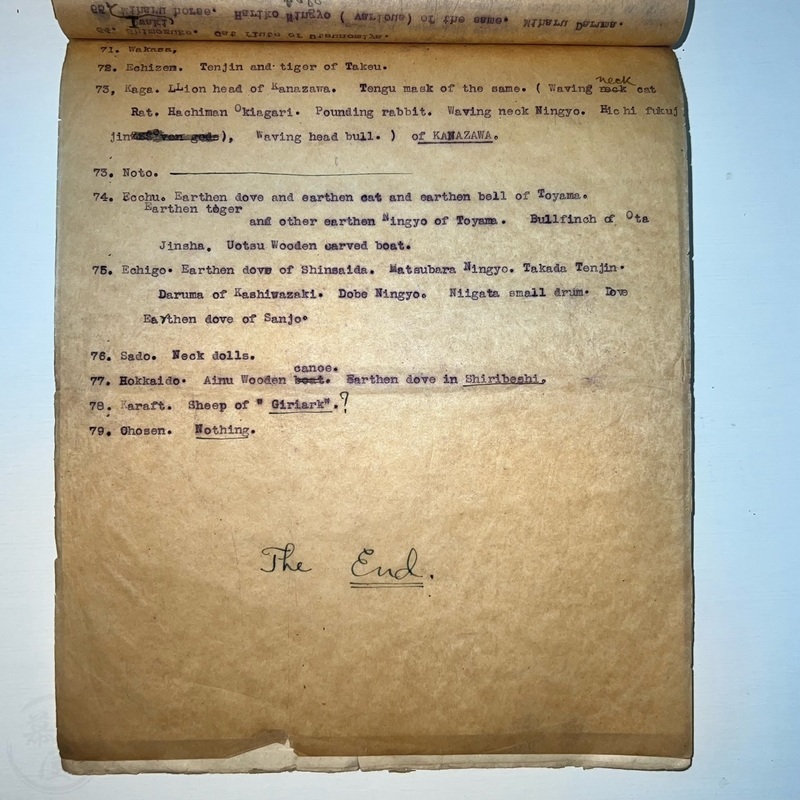 65. Miharu horse. Hariko Ningyo ( various) of the same. Miharu Daruma.
71. Wakasa,
72. Echizen. Tenjin and tiger of Takeu.
neck
73, Kaga. LLion head of Kanazawa. Tengu mask of the same. ( Waving neck cat
Rat. Hachiman Okiagari. Pounding rabbit. Waving neck Ningyo. Hichi fukuj
jin ), Waving head bull. ) of KANAZAWA.
73. Noto.
74. Ecchu. Earthen dove and earthen cat and earthen bell of Toyama.
Earthen tiger
and other earthen Ningyo of Toyama. Bullfinch of Ota
Jinsha. Uotsu Wooden carved boat.
75. Echigo. Earthen dove of Shinsaida. Matsubara Ningyo. Takada Tenjin.
Daruma of Kashiwazaki. Dobe Ningyo. Niigata small drum. Dove
Earthen dove of Sanjo.
76. Sado. Neck dolls.
canoe.
77. Hokkaido. Ainu Wooden boat. Earthen dove in Shiribeshi.
78. Karaft. Sheep of " Giriark".?
79. Chosen. Nothing.
The End.